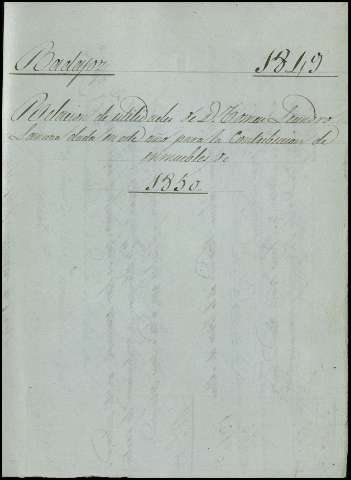 Badajoz 1849
Relacion de utilidades de D. Tomas Leandro
dada en este año para la Contribucion de
inmuebles de
1850